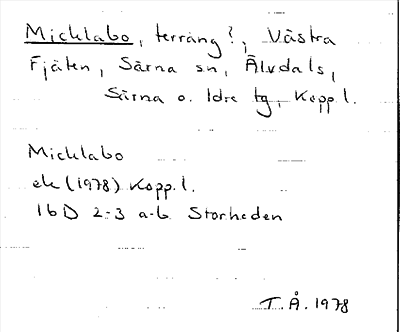 Micklabo, terräng?, Västra
Fjäten, Särna sn, Älvdals,
Särna o. Idre tg, Kopp. l.
Micklabo
ek (1978) Kopp. l.
16D 2-3 a-b Storheden
T. Å. 1978